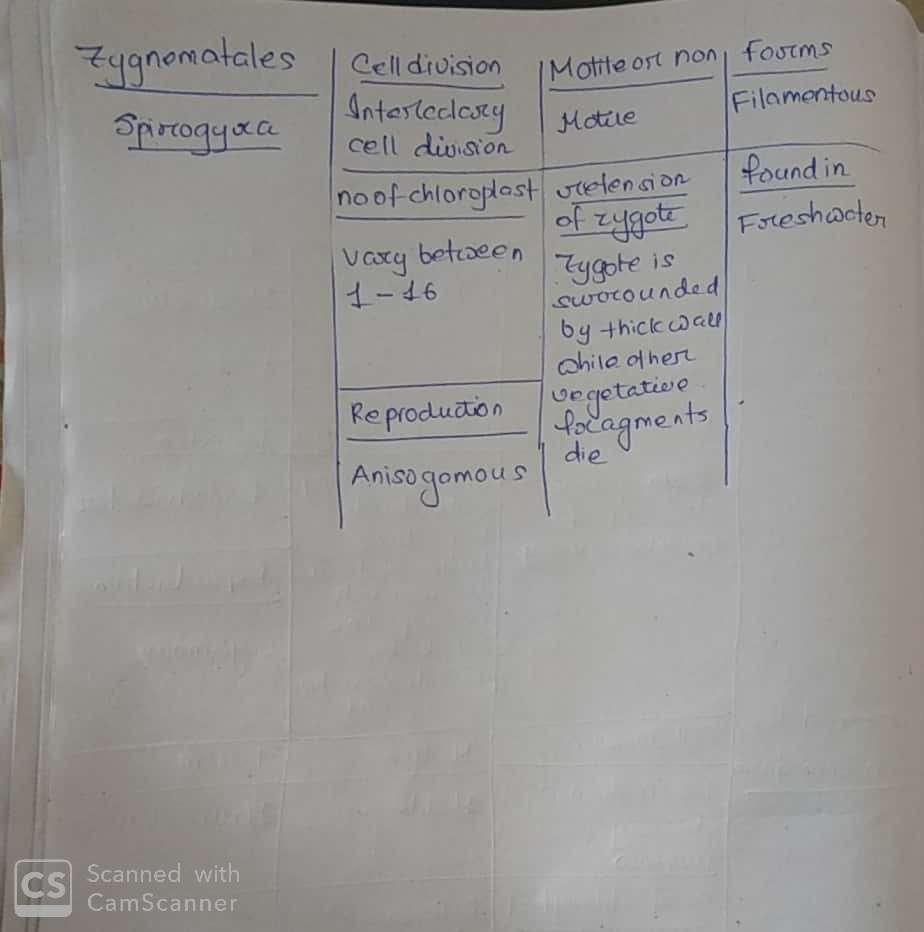 Zygnematales
Spirogyra
Cell division
Intercalary
cell division
Motile or non
Motile
Forms
Filamentous
no of chloroplast
vary between
1 - 16
retension
of zygote
Zygote is
surrounded
by thick wall
while other
vegetative
fragments
die
found in
Freshwater
Reproduction
Anisogomous
CS Scanned with
CamScanner